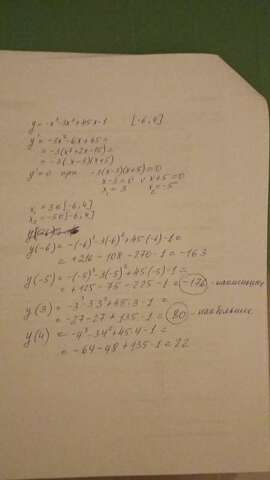 y = -x³-3x²+45x-1 [-6,4]
y' = -3x²-6x+45=
= -3(x²+2x-15)=
= -3(x-3)(x+5)
y'=0 при -3(x-3)(x+5)=0
x-3=0 v x+5=0
x₁=3 x₂=-5
x₁=3∈[-6,4]
x₂=-5∈[-6,4]
y(-6) = -(-6)³-3(-6)²+45(-6)-1=
= +216-108-270-1=-163
y(-5) = -(-5)³-3(-5)²+45(-5)-1=
= +125-75-225-1=-176 - наименьшее
y(3) = -3³-3·3²+45·3-1=
= -27-27+135-1=80 - наибольшее
y(4) = -4³-3·4²+45·4-1=
= -64-48+135-1=22